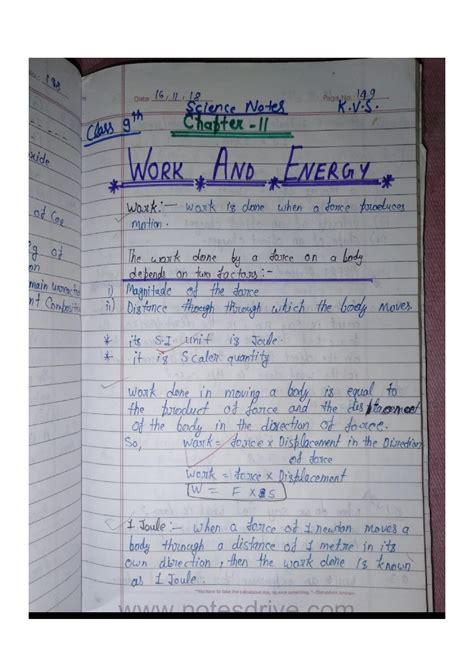 Date 16.11.18 Page No. 149
Science Notes K.V.S.
Class 9th Chapter -11
*WORK *AND *ENERGY*
Work:- Work is done when a force produces
motion.
The work done by a force on a body
depends on two factors:-
i) Magnitude of the force
ii) Distance through which the body moves.
* its S.I unit is Joule.
* it is Scaler quantity
Work done in moving a body is equal to
the product of force and the displacement
of the body in the direction of force.
So, Work = force x Displacement in the Direction
of force
Work = force x Displacement
W = F x S
1 Joule:- When a force of 1 newton moves a
body through a distance of 1 metre in its
own direction, then the work done is known
as 1 Joule.
www.notesdrive.com